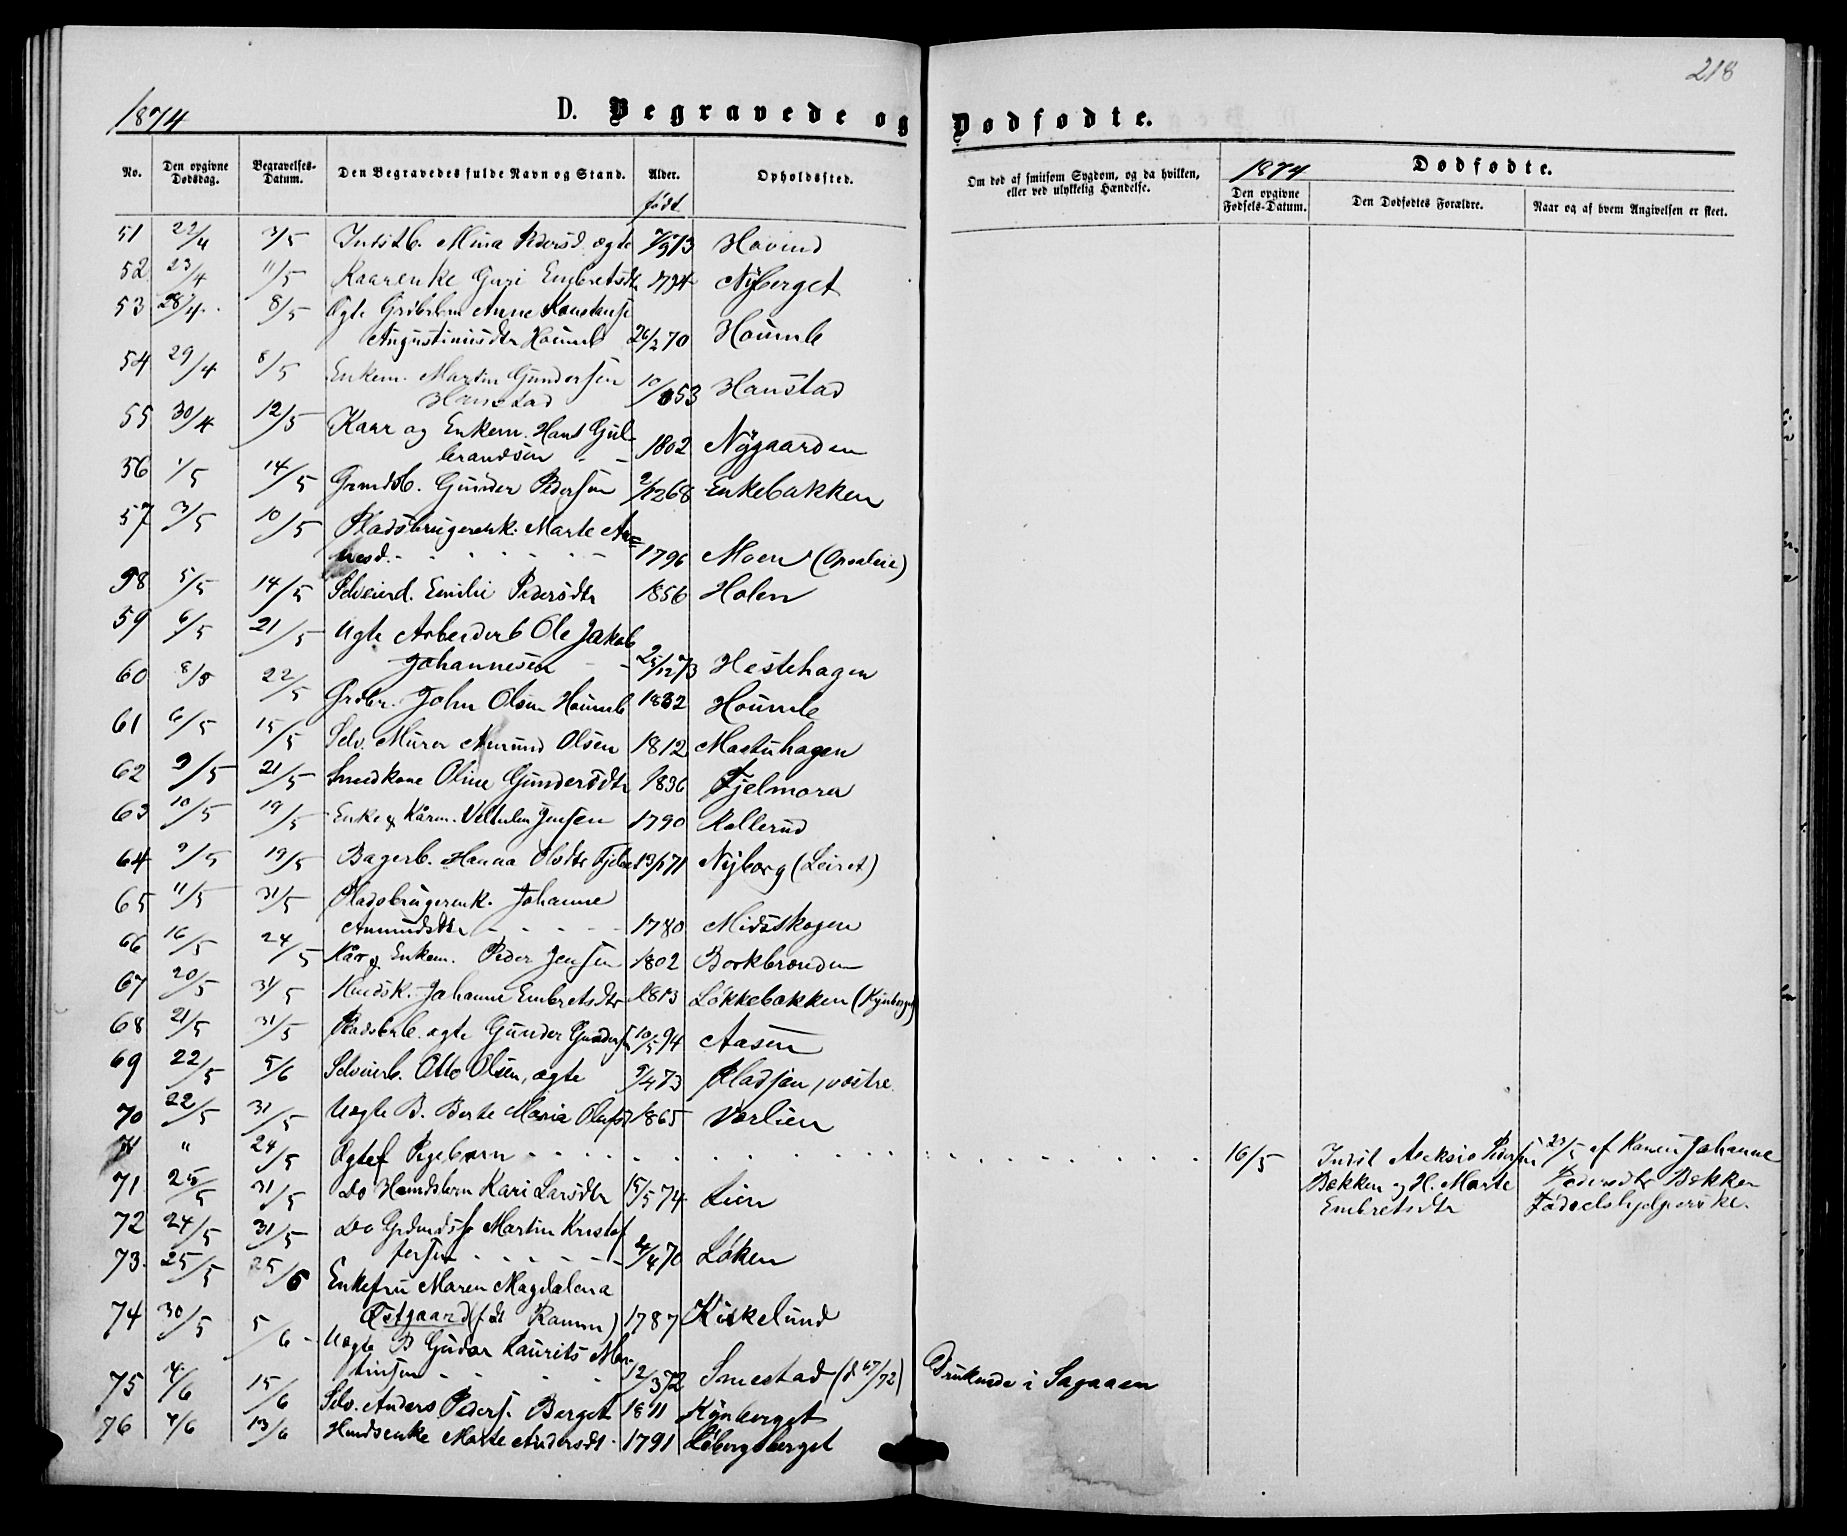 218
1874
D. Begravede og Dødfødte.
No. Den opgivne Dødsdag. Begravelses-Datum. Den Begravedes fulde Navn og Stand. Alder. Opholdssted. Om død af smitsom Sygdom, og da hvilken, eller ved ulykkelig Hændelse. 1874 Dødfødte.
født
Den opgivne Fødsels-Datum. Den Dødfødtes Forældre. Naar og af hvem Angivelsen er skeet.
51 22/4 3/5 Indstb. Mina Pedersd. ægte Hovind
52 23/4 11/5 Kaarenke Guri Embretsdtr Nyberget
53 28/4 8/5 Ægte Grdbrbrn Anne Konstanse
Augustinusdtr Houmb 26/2 70 Houmb
54 29/4 8/5 Enkem. Martin Gundersen
Hanstad Hanstad
55 30/4 12/5 Kaar og Enkem. Hans Gul-
brandsen 1802 Nygaarden
56 1/5 14/5 Grmdsb. Gunder Pedersen 2/12 68 Enkebakken
57 3/5 10/5 Pladsbrugerenk. Marte Ar=
nesd. 1796 Moen (Opsaleie)
58 5/5 14/5 Selveierd. Emilie Pedersdtr 1856 Holen
59 6/5 21/5 Uægte Arbeiderb Ole Jakob
Johannesen 25/12 73 Hestehagen
60 8/5 22/5 Grdbr. John Olsen Houmb 1832 Houmb
61 6/5 15/5 Selv. Murer Amund Olsen 1812 Martuhagen
62 9/5 21/5 Smedkone Oline Gundersdtr 1836 Fjelmora
63 10/5 19/5 Enke & Kårm. Vilhelm Jensen 1790 Rollerud
64 9/5 19/5 Bagerb. Hanna Olsdtr 13/1 71 Nyborg (Leiret)
65 11/5 31/5 Pladsbrugerenk. Johanne
Amundsdtr 1780 Midtskogen
66 16/5 24/5 Kår & Enkem. Peder Jensen 1802 Borkbrænden
67 20/5 31/5 Hmdsk. Johanne Embretsdtr 1813 Løkkebakken (Kynberget)
68 21/5 31/5 Pladsbrb. ægte Gunder Gunders. 10/5 74 Aasen
69 22/5 5/6 Selveierb. Otto Olsen, ægte 9/4 73 Pladsen, vestre
70 22/5 31/5 Uægte B. Berte Maria Olufsd 1865 Vorlien
" 24/5 Ægtef Pigebarn 16/5 Indst Aeksis Pedersen 23/5 af Konen Johanne
Bækken og H. Marte Pedersdtr Bækken
Embretsdtr Fødselshjelperske.
71 25/5 31/5 Do Hmdsbrn Kari Larsdtr 15/5 74 Lien
72 24/5 31/5 Do Grdmdsb Martin Kristof
fersen 4/4 70 Løken
73. 25/5 25/6 Enkefru Maren Magdalena
Østgaard (født Ramm) 1787 Kirkelund
74 30/5 5/6 Uægte B Gudar Laurits Mar-
tinsen 12/3 72 Smestad Druknede i Sagaaen
75 4/6 15/6 Selv. Anders Peders. Berget 1811 Kynberget
76 4/6 13/6 Hmdsenke Marte Andersdt 1791 Løbergsberget